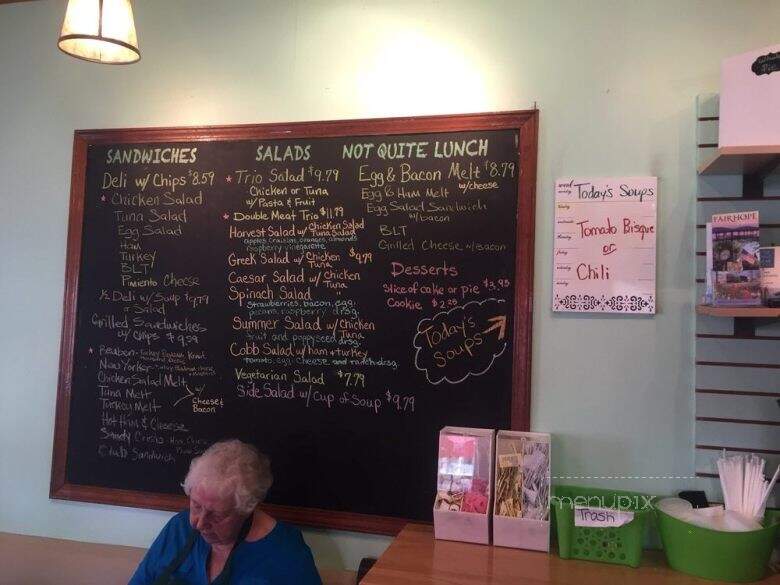 SANDWICHES
Deli w/ Chips $8.59
* Chicken Salad
Tuna Salad
Egg Salad
Ham
Turkey
BLT
Pimiento Cheese
1/2 Deli w/ Soup $9.79
or Salad
Grilled Sandwiches
w/ Chips $9.59
* Reuben - Turkey Kraut
New Yorker
Chicken Salad Melt
Tuna Melt
Turkey Melt
w/
Cheese &
Bacon
Hot Ham & Cheese
Sandy
Club Sandwich
SALADS
* Trio Salad $9.79
Chicken or Tuna
w/ Pasta & Fruit
* Double Meat Trio $11.79
Harvest Salad w/ Chicken Salad
Tuna Salad
apples, craisins, oranges, almonds
raspberry vinegarette
Greek Salad w/ Chicken $9.79
Tuna
Caesar Salad w/ Chicken
Tuna
Spinach Salad
strawberries, bacon, egg,
pecans, raspberry drsg.
Summer Salad w/ Chicken
Tuna
fruit and poppyseed drsg.
Cobb Salad w/ ham + turkey
tomato, egg, cheese and ranch drsg.
Vegetarian Salad $7.79
Side Salad w/ Cup of Soup $9.79
NOT QUITE LUNCH
Egg & Bacon Melt $8.79
w/cheese
Egg & Ham Melt
Egg Salad Sandwich
w/bacon
BLT
Grilled Cheese w/Bacon
Desserts
Slice of cake or pie $3.95
Cookie $2.25
Today's
Soups
Today's Soups
Tomato Bisque
or
Chili
FAIRHOPE
menupix
Trash